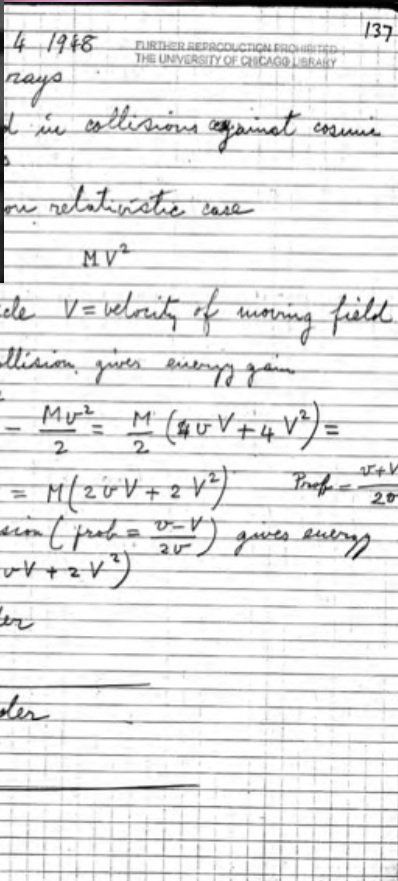 137
4 1948
FURTHER REPRODUCTION PROHIBITED
THE UNIVERSITY OF CHICAGO LIBRARY
rays
d in collisions against cosmic
on relativistic case
MV²
cle V = velocity of moving field
ollision gives energy gain
- Mv²/2 = M/2 (4vV + 4V²) =
= M(2vV + 2V²) Prob = v+V/2v
sion (prob = v-V/2v) gives energy
vV + 2V²)
der
der